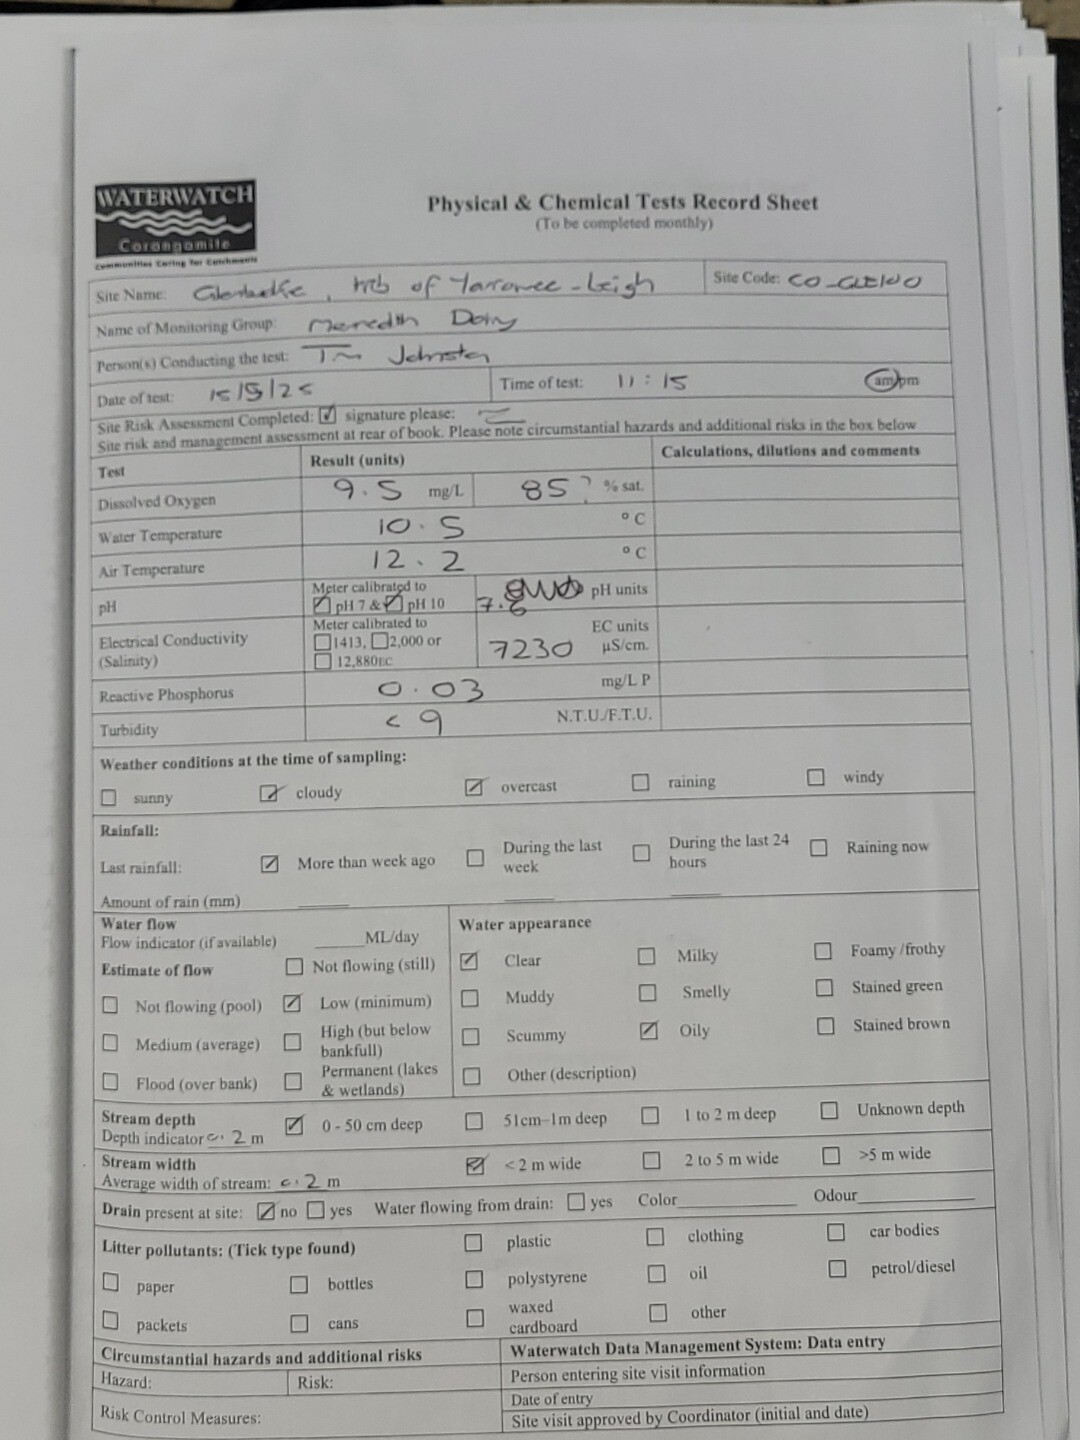 WATERWATCH
Corangamite
Communities Caring for Catchments
Physical & Chemical Tests Record Sheet
(To be completed monthly)
Site Name: , trib of Yarowee-Leigh
Site Code:
Name of Monitoring Group: Meredith Dairy
Person(s) Conducting the test: Tim Johnston
Date of test: 15/5/25
Time of test: 11:15 am/pm
Site Risk Assessment Completed: ☑ signature please:
Site risk and management assessment at rear of book. Please note circumstantial hazards and additional risks in the box below
Test Result (units) Calculations, dilutions and comments
Dissolved Oxygen 9.5 mg/L 85? % sat.
Water Temperature 10.5 °C
Air Temperature 12.2 °C
pH Meter calibrated to ☑ pH 7 & ☑ pH 10 7.6 pH units
Electrical Conductivity (Salinity) Meter calibrated to ☐ 1413, ☐ 2,000 or ☐ 12,880EC 7230 EC units µS/cm.
Reactive Phosphorus 0.03 mg/L P
Turbidity <9 N.T.U./F.T.U.
Weather conditions at the time of sampling:
☐ sunny ☑ cloudy ☑ overcast ☐ raining ☐ windy
Rainfall:
Last rainfall: ☑ More than week ago ☐ During the last week ☐ During the last 24 hours ☐ Raining now
Amount of rain (mm) ____ ____ ____
Water flow
Flow indicator (if available) ____ML/day
Estimate of flow ☐ Not flowing (still)
☐ Not flowing (pool) ☑ Low (minimum)
☐ Medium (average) ☐ High (but below bankfull)
☐ Flood (over bank) ☐ Permanent (lakes & wetlands)
Water appearance
☑ Clear ☐ Milky ☐ Foamy /frothy
☐ Muddy ☐ Smelly ☐ Stained green
☐ Scummy ☑ Oily ☐ Stained brown
☐ Other (description)
Stream depth
Depth indicator 0.2 m ☑ 0 - 50 cm deep ☐ 51cm–1m deep ☐ 1 to 2 m deep ☐ Unknown depth
Stream width
Average width of stream: 0.2 m ☑ < 2 m wide ☐ 2 to 5 m wide ☐ >5 m wide
Drain present at site: ☑ no ☐ yes Water flowing from drain: ☐ yes Color____ Odour____
Litter pollutants: (Tick type found) ☐ plastic ☐ clothing ☐ car bodies
☐ paper ☐ bottles ☐ polystyrene ☐ oil ☐ petrol/diesel
☐ packets ☐ cans ☐ waxed cardboard ☐ other
Circumstantial hazards and additional risks
Hazard: Risk:
Risk Control Measures:
Waterwatch Data Management System: Data entry
Person entering site visit information
Date of entry
Site visit approved by Coordinator (initial and date)